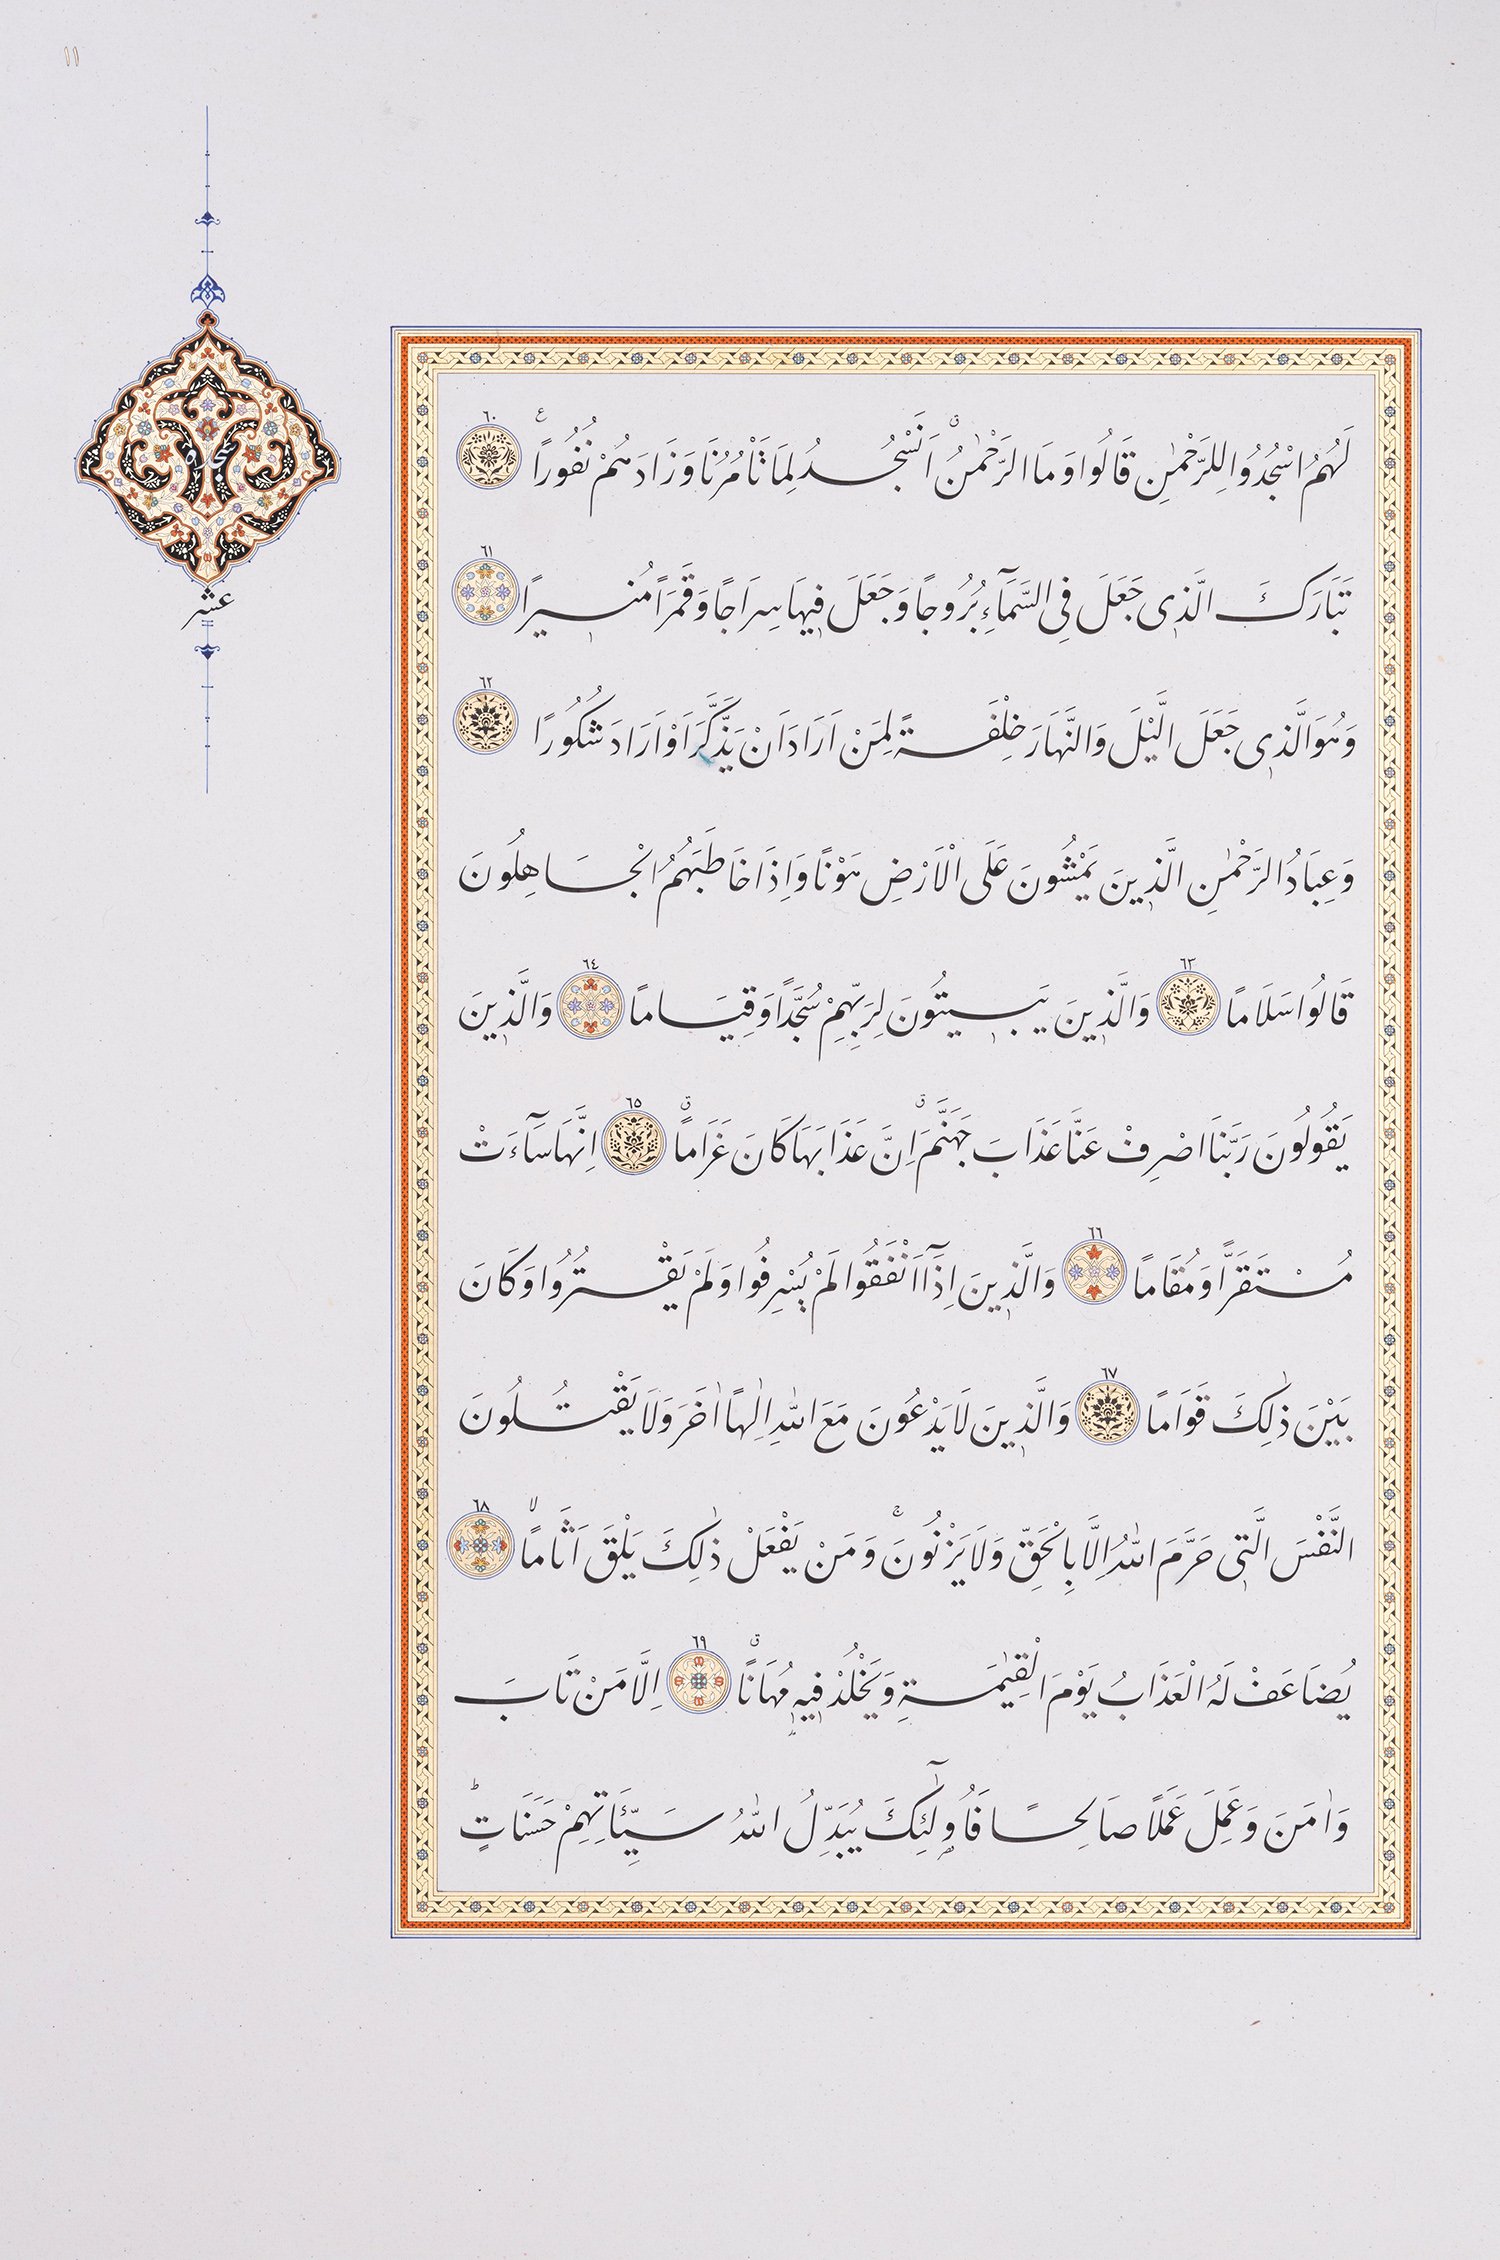 ١١
لَهُمُ اسْجُدُوا لِلرَّحْمٰنِ قَالُوا وَمَا الرَّحْمٰنُۗ اَنَسْجُدُ لِمَا تَأْمُرُنَا وَزَادَهُمْ نُفُورًاۧ ٦٠
تَبَارَكَ الَّذٖى جَعَلَ فِى السَّمَٓاءِ بُرُوجًا وَجَعَلَ فٖيهَا سِرَاجًا وَقَمَرًا مُنٖيرًا ٦١
وَهُوَ الَّذٖى جَعَلَ الَّيْلَ وَالنَّهَارَ خِلْفَةً لِمَنْ اَرَادَ اَنْ يَذَّكَّرَ اَوْ اَرَادَ شُكُورًا ٦٢
وَعِبَادُ الرَّحْمٰنِ الَّذٖينَ يَمْشُونَ عَلَى الْاَرْضِ هَوْنًا وَاِذَا خَاطَبَهُمُ الْجَاهِلُونَ
قَالُوا سَلَامًا ٦٣ وَالَّذٖينَ يَبٖيتُونَ لِرَبِّهِمْ سُجَّدًا وَقِيَامًا ٦٤ وَالَّذٖينَ
يَقُولُونَ رَبَّنَا اصْرِفْ عَنَّا عَذَابَ جَهَنَّمَۗ اِنَّ عَذَابَهَا كَانَ غَرَامًاۗ ٦٥ اِنَّهَا سَٓاءَتْ
مُسْتَقَرًّا وَمُقَامًا ٦٦ وَالَّذٖينَ اِذَٓا اَنْفَقُوا لَمْ يُسْرِفُوا وَلَمْ يَقْتُرُوا وَكَانَ
بَيْنَ ذٰلِكَ قَوَامًا ٦٧ وَالَّذٖينَ لَا يَدْعُونَ مَعَ اللّٰهِ اِلٰهًا اٰخَرَ وَلَا يَقْتُلُونَ
النَّفْسَ الَّتٖى حَرَّمَ اللّٰهُ اِلَّا بِالْحَقِّ وَلَا يَزْنُونَۚ وَمَنْ يَفْعَلْ ذٰلِكَ يَلْقَ اَثَامًاۙ ٦٨
يُضَاعَفْ لَهُ الْعَذَابُ يَوْمَ الْقِيٰمَةِ وَيَخْلُدْ فٖيهٖ مُهَانًاۗ ٦٩ اِلَّا مَنْ تَابَ
وَاٰمَنَ وَعَمِلَ عَمَلًا صَالِحًا فَاُو۬لٰٓئِكَ يُبَدِّلُ اللّٰهُ سَيِّـَٔاتِهِمْ حَسَنَاتٍؕ
عشر